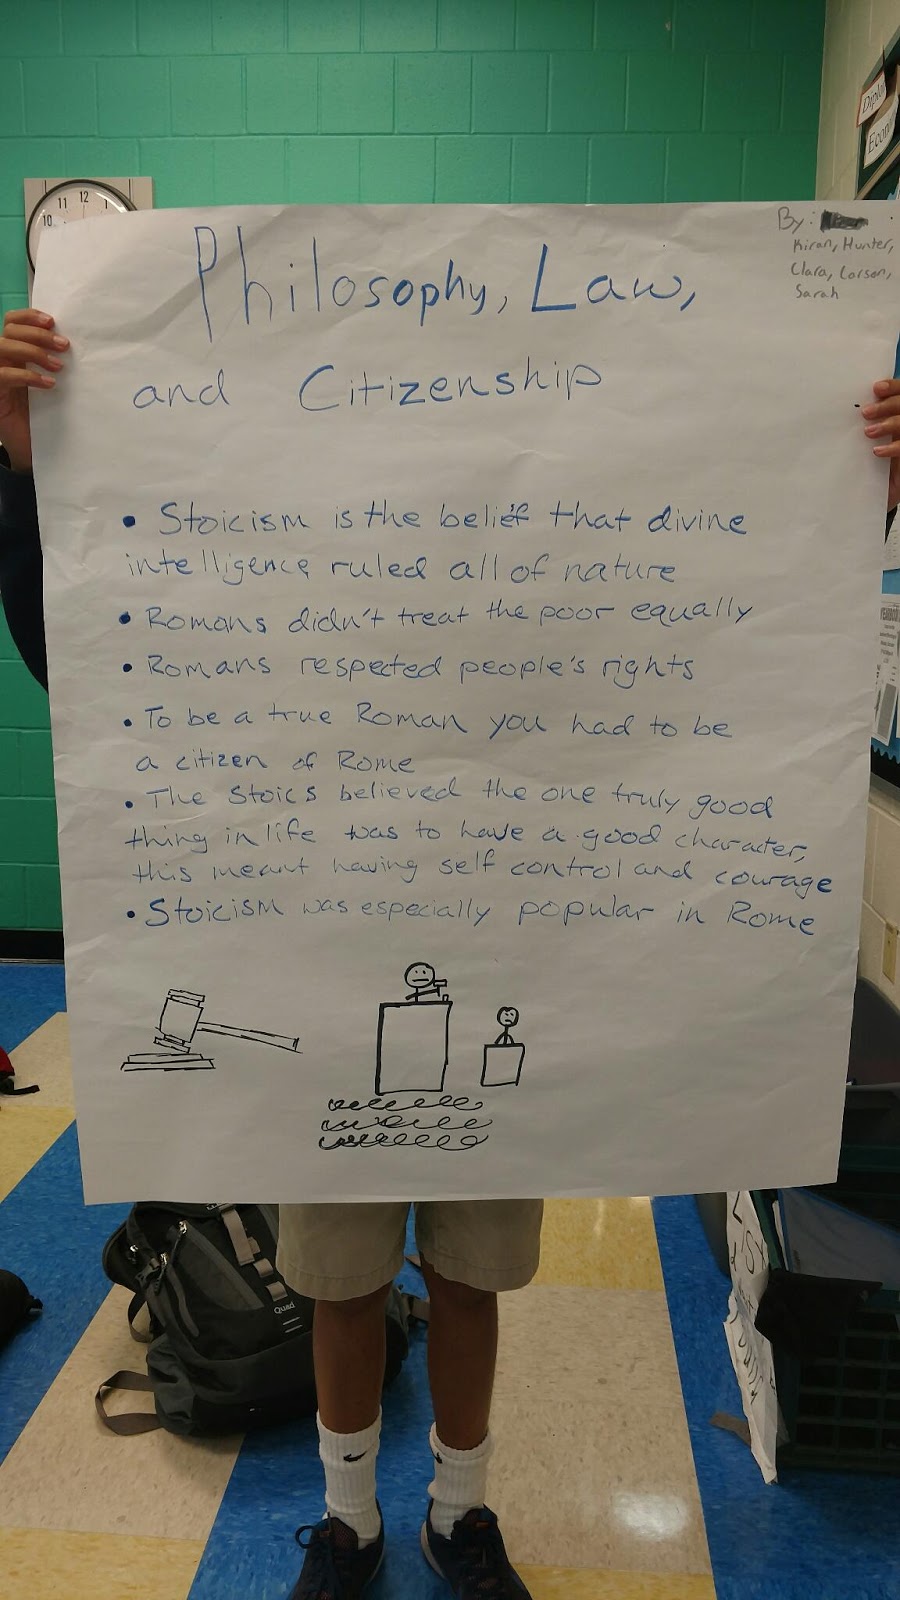 11 12 1
10
Diplo
Econ
By:
Kiran, Hunter,
Clara, Carson,
Sarah
Philosophy, Law,
and Citizenship
• Stoicism is the belief that divine
intelligence ruled all of nature
• Romans didn't treat the poor equally
• Romans respected people's rights
• To be a true Roman you had to be
a citizen of Rome
• The Stoics believed the one truly good
thing in life was to have a good character,
this meant having self control and courage
• Stoicism was especially popular in Rome
Quad